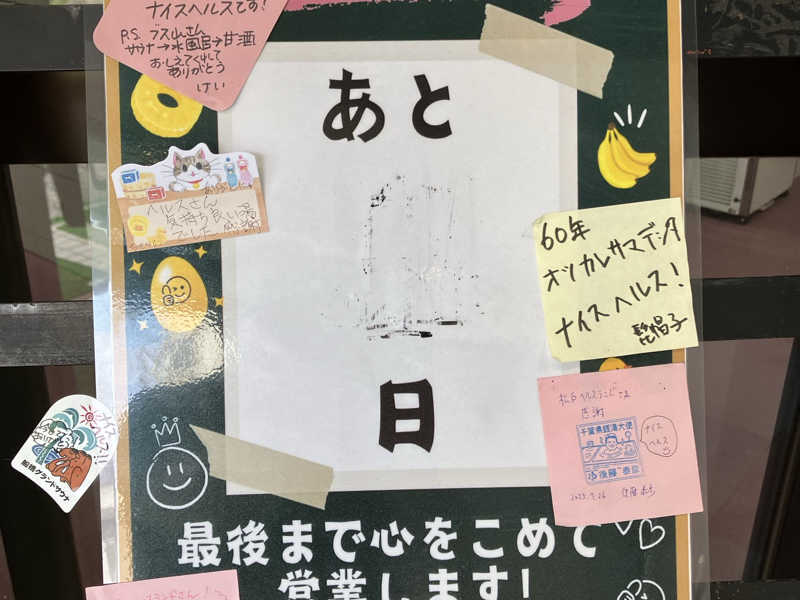 ナイスヘルスです!
P.S. ブス山さん
サウナ→水風呂→甘酒
おしえてくれて
ありがとう
けい
あと
日
ヘルスさん
気持ち良い湯
でした
60年
オツカレサマデシタ
ナイスヘルス!
感謝
千葉県銭湯大使
ナイス
ヘルス
船橋グランドサウナ
最後まで心をこめて
営業します!